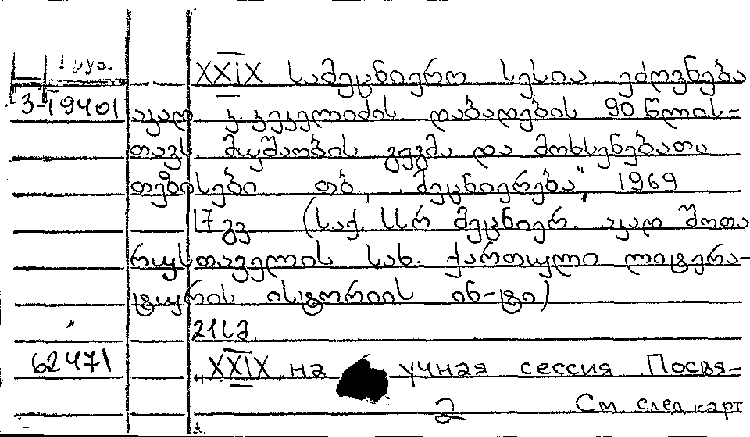 Груз.
XXIX სამეცნიერო სესია ეძღვნება
3-19401 აკად. კ. კეკელიძის დაბადების 90 წლის-
თავს. მუშაობის გეგმა და მოხსენებათა
თეზისები თბ., „მეცნიერება", 1969
17 გვ. (საქ. სსრ მეცნიერ. აკად. შოთა
რუსთაველის სახ. ქართული ლიტერა-
ტურის ისტორიის ინ-ტი)
21 სმ
62471 XXIX научная сессия. Посвя-
2 См. след. карт